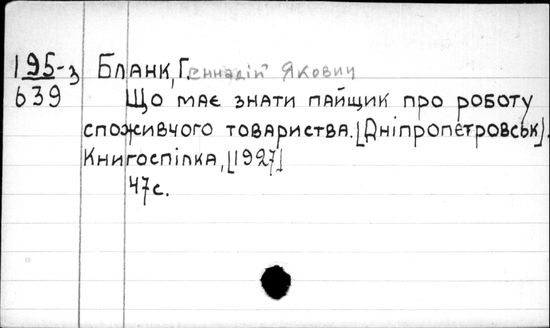 195-з
639
Бланк, Геннадій Якович
Що має знати пайщик про роботу
споживчого товариства. [Дніпропетровськ].
Книгоспілка, [1927]
47с.